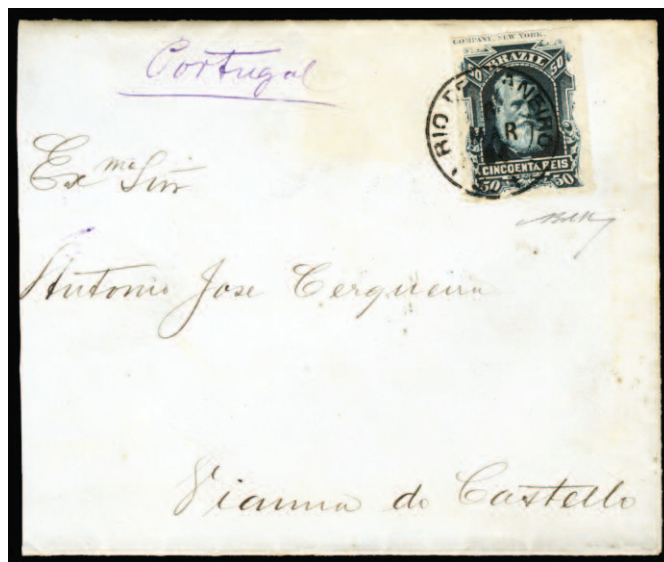 Portugal
COMPANY, NEW YORK.
BRAZIL
50 50
RIO DE JANEIRO
CINCOENTA REIS
50 50
Exmo Snr
Antonio Jose Cerqueira
Vianna do Castello